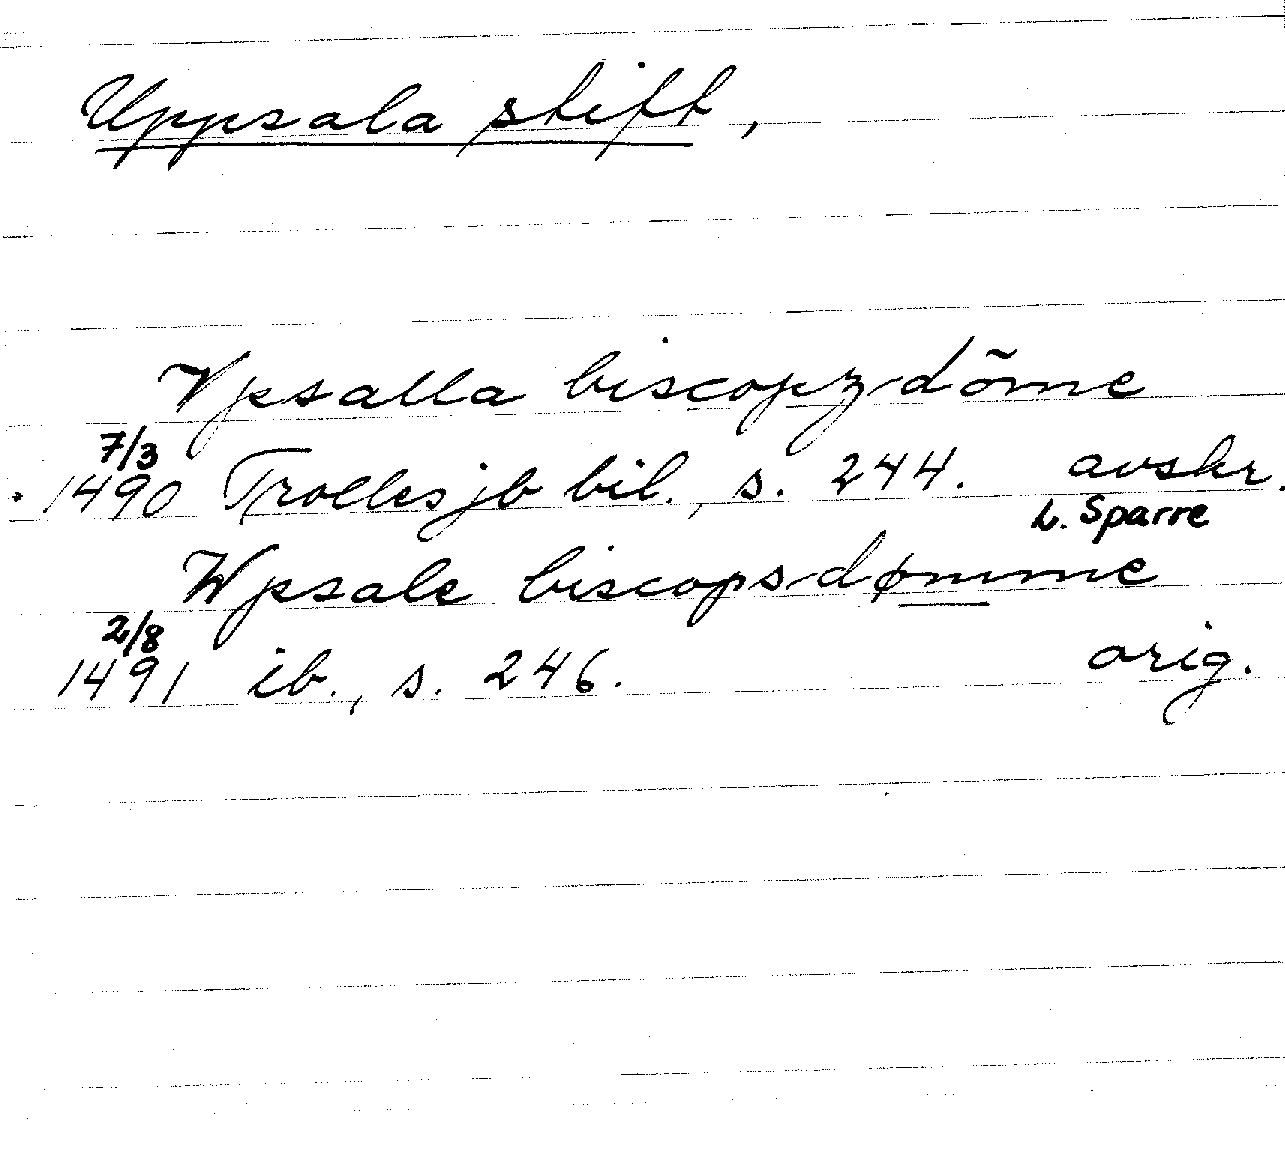 Uppsala stift,
Vpsalla biscopz dõme
7/3
1490 Trolles jb bil., s. 244. avskr.
L. Sparre
Wpsale biscops dømme
2/8
1491 ib., s. 246. orig.